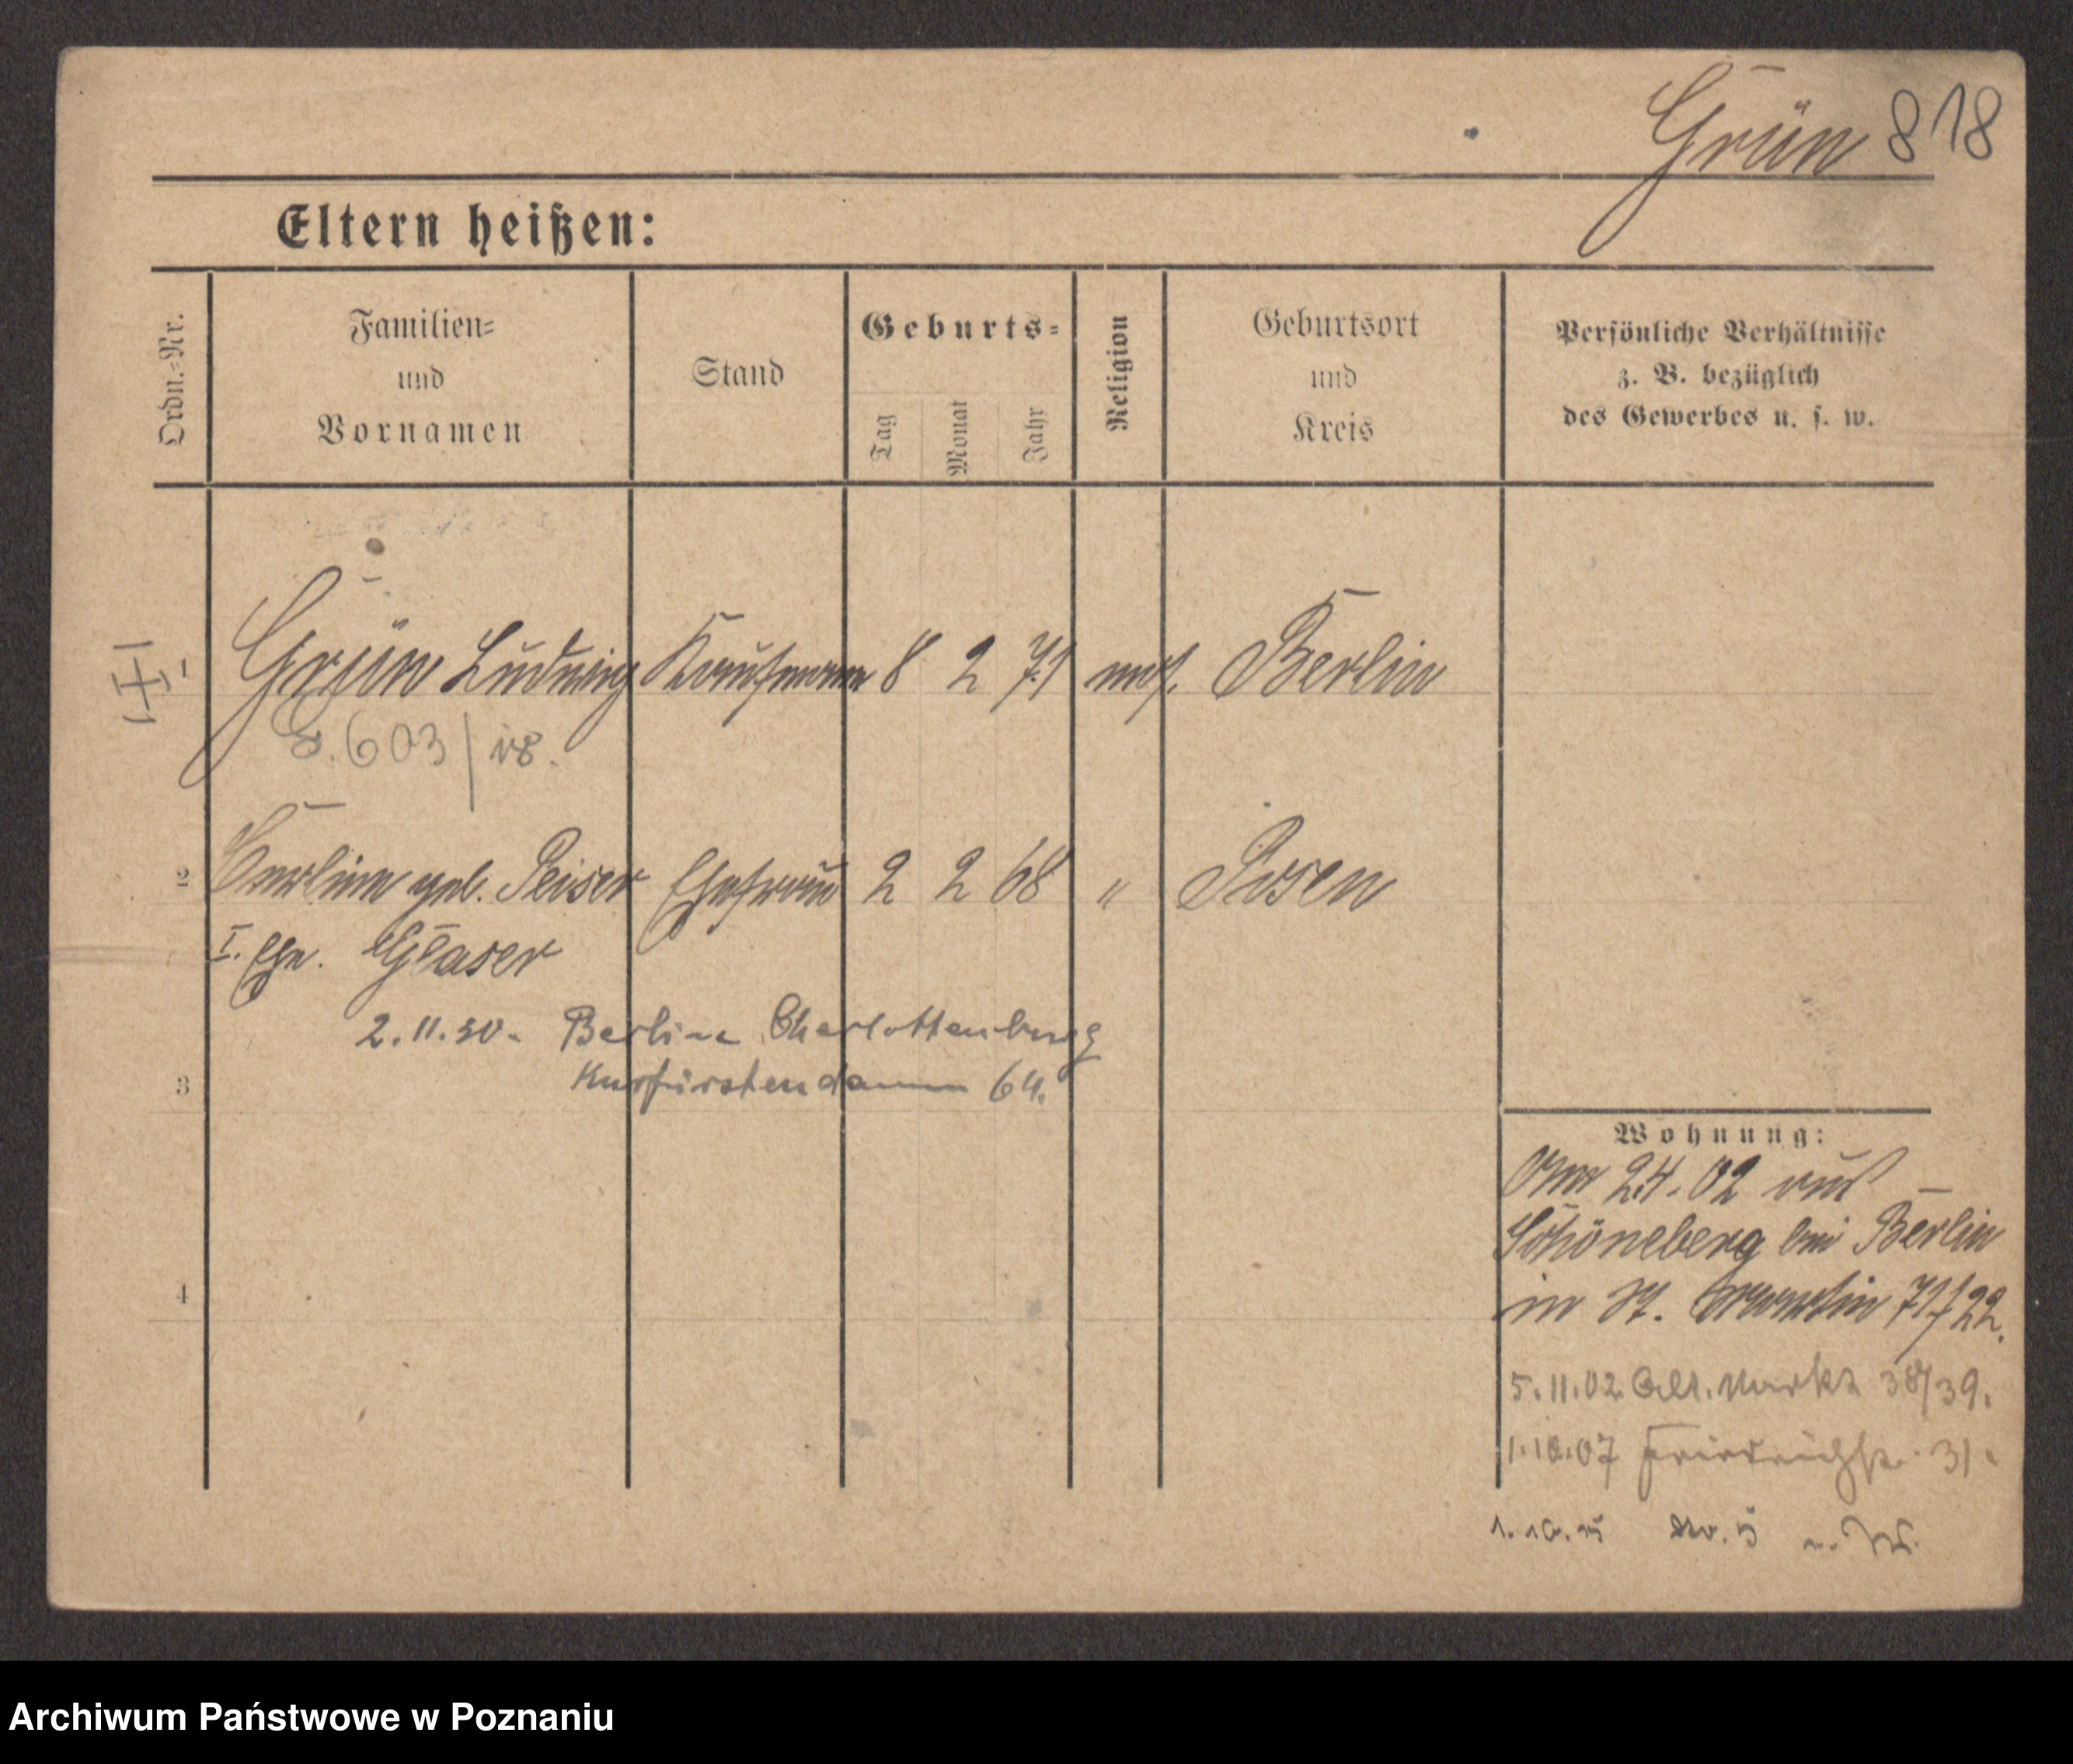 Grün 818
Eltern heißen:
Ordn.-Nr.
Familien-
und
Vornamen
Stand
Geburts-
Tag
Monat
Jahr
Religion
Geburtsort
und
Kreis
Persönliche Verhältnisse
z. B. bezüglich
des Gewerbes u. s. w.
Grün Ludwig Kaufmann 8 2 71 mos. Berlin
G. 603/
2 geb. Peiser Ehefrau 2 2 68 " Posen
I. Ehe. Glaser
2.11.20. Berlin Charlottenburg
3 Kurfürstendamm 64.
4
Wohnung:
Am 2.4.02 aus
Schöneberg bei Berlin
in St. Martin 71/22.
5.11.02. Alt. Markt 38/39.
1.10.07 Friedrichstr. 31.
1.10.15
Archiwum Państwowe w Poznaniu